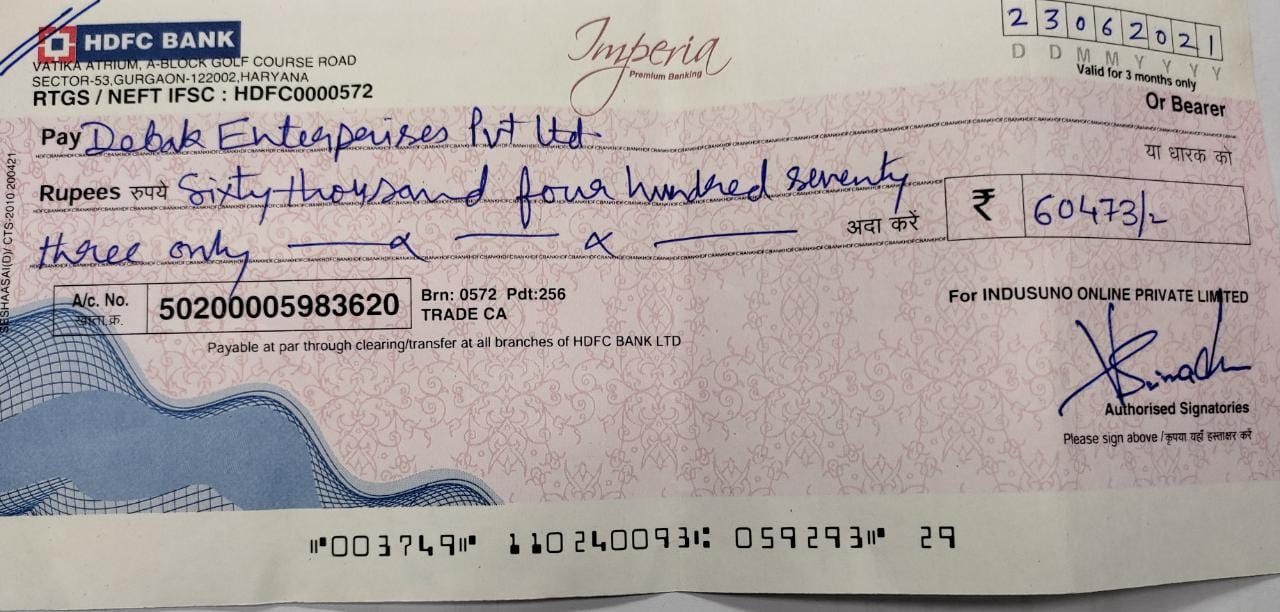 HDFC BANK
VATIKA ATRIUM, A-BLOCK GOLF COURSE ROAD
SECTOR-53,GURGAON-122002,HARYANA
RTGS / NEFT IFSC : HDFC0000572
Imperia
Premium Banking
2 3 0 6 2 0 2 1
D D M M Y Y Y Y
Valid for 3 months only
Or Bearer
Pay Debak Enterprises Pvt Ltd
या धारक को
Rupees रुपये Sixty thousand four hundred seventy
three only
अदा करें
₹ 60473/-
A/c. No.
खाता.क्र.
50200005983620
Brn: 0572 Pdt:256
TRADE CA
For INDUSUNO ONLINE PRIVATE LIMITED
Payable at par through clearing/transfer at all branches of HDFC BANK LTD
Authorised Signatories
Please sign above /कृपया यहाँ हस्ताक्षर करें
SESHAASAI(D)/ CTS-2010 200421
⑈003749⑈ 110240093⑆ 059293⑈ 29